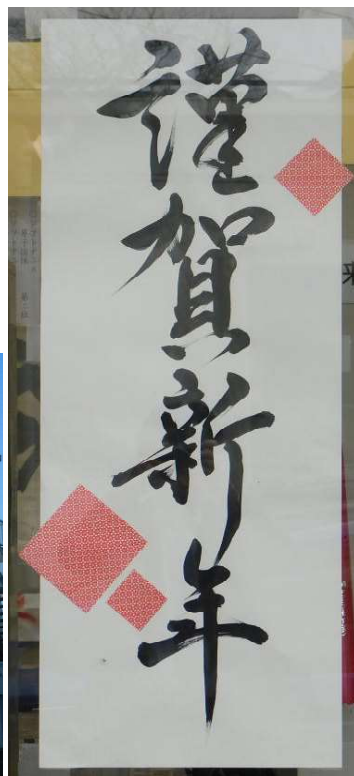 謹賀新年
来